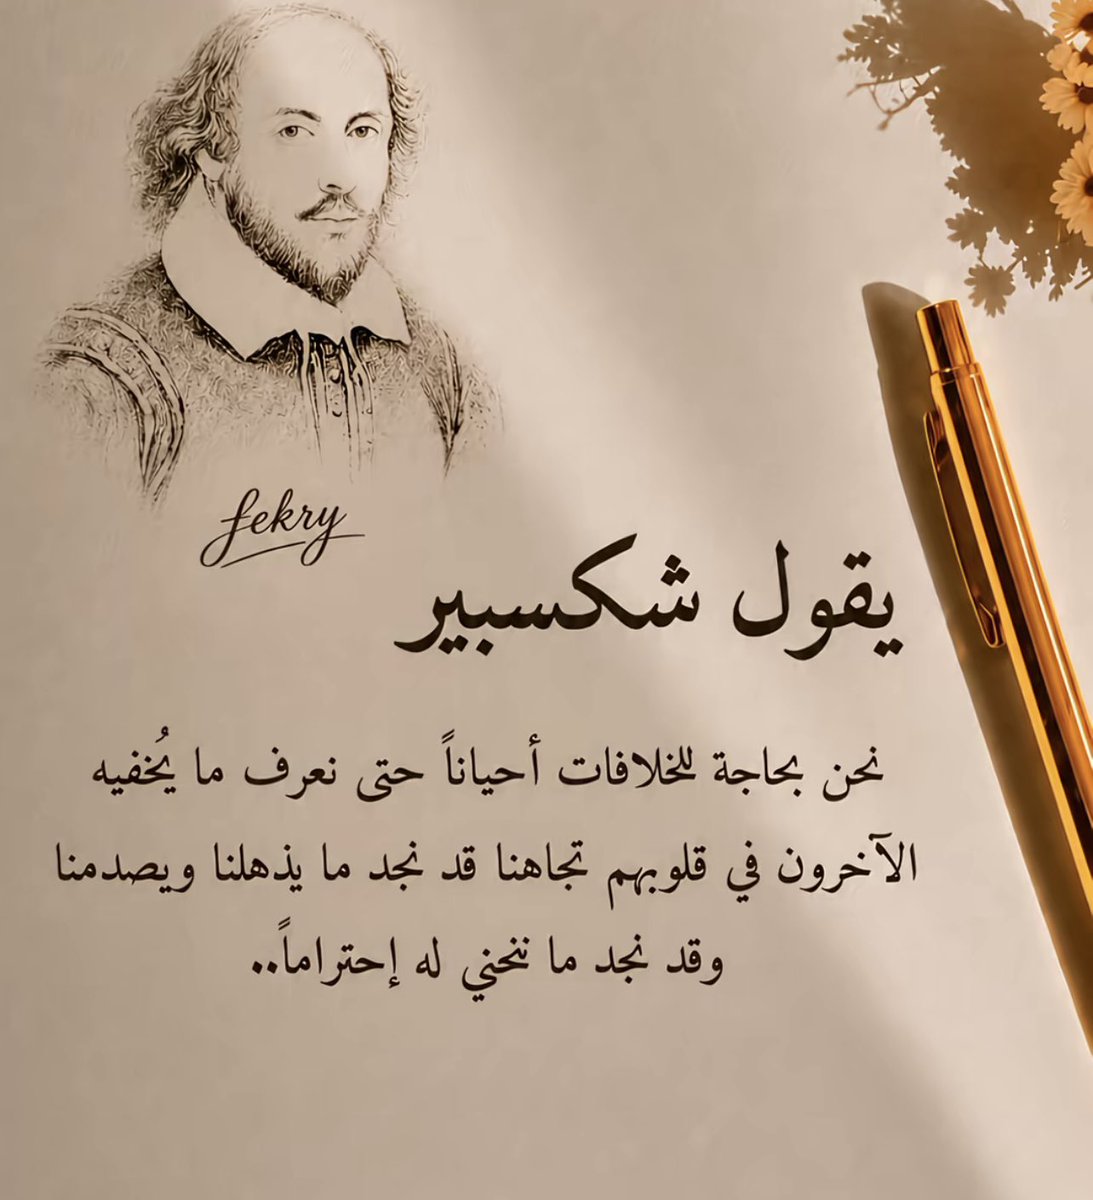 fekry
يقول شكسبير
نحن بحاجة للخلافات أحياناً حتى نعرف ما يُخفيه
الآخرون في قلوبهم تجاهنا قد نجد ما يذهلنا ويصدمنا
وقد نجد ما ننحني له إحتراماً..